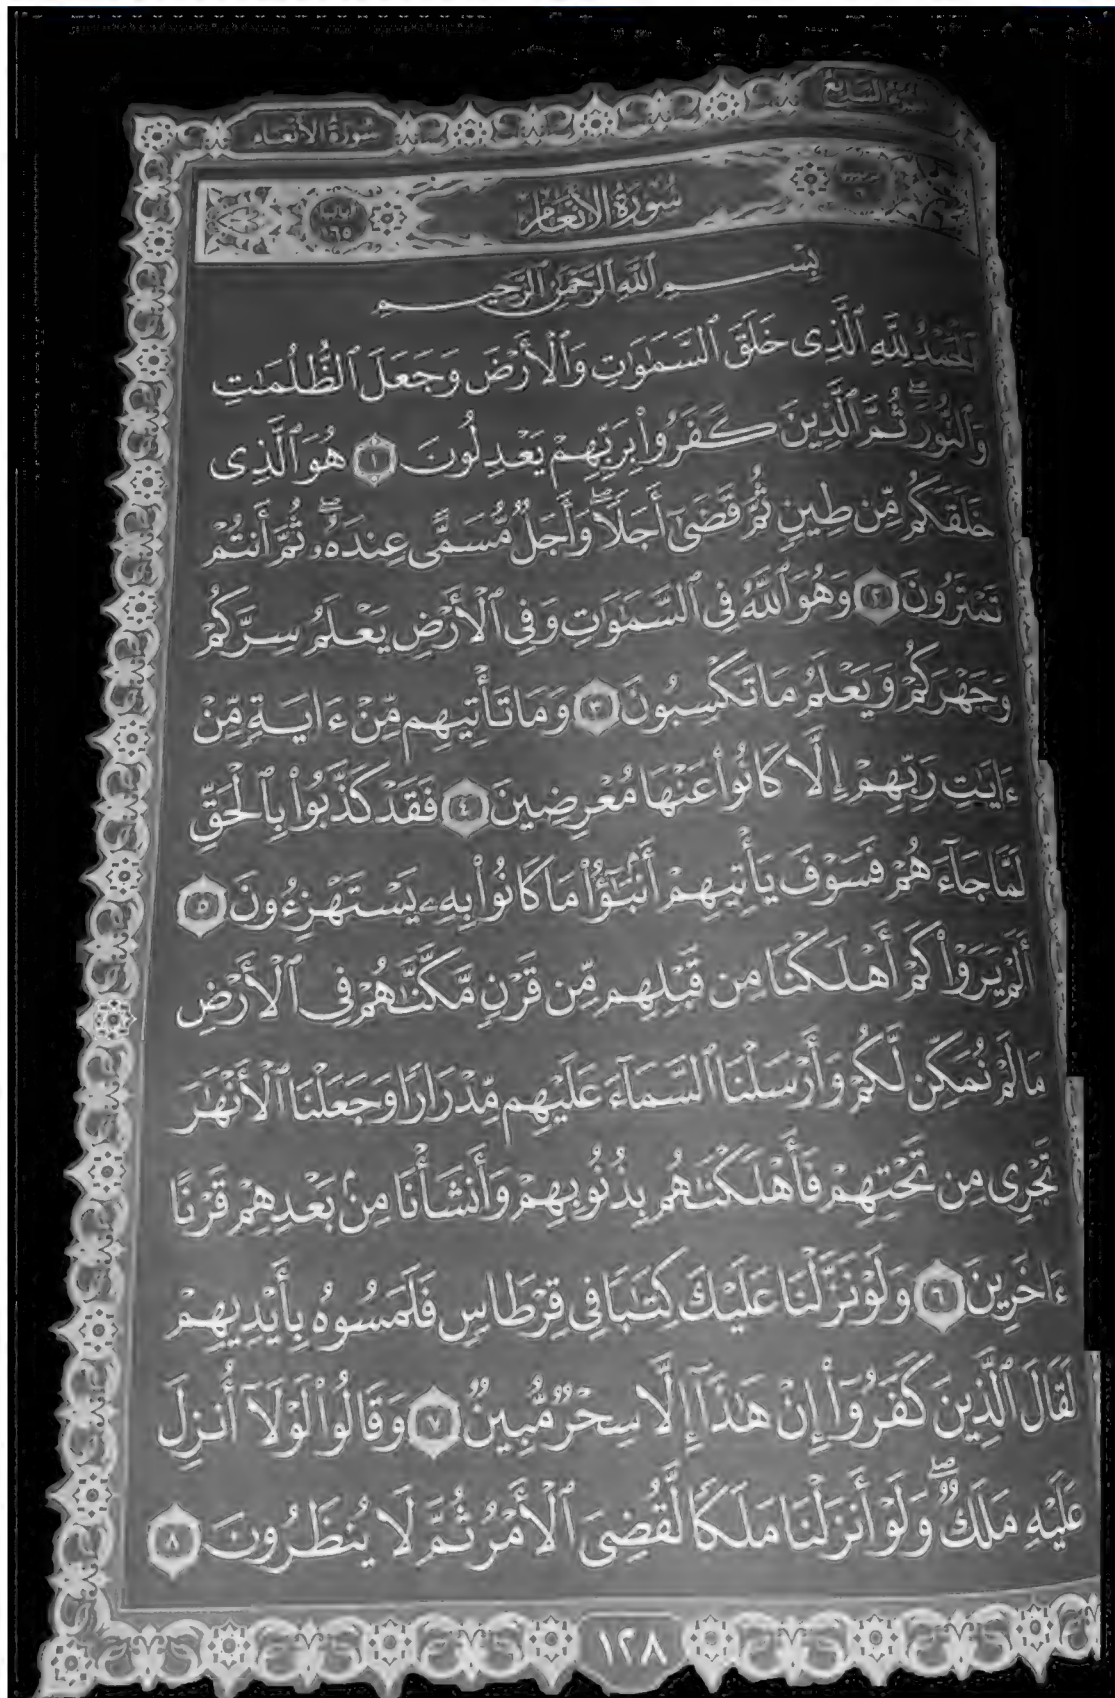 سُورَةُ الأَنْعَامِ
الجُزْءُ السَّابِعُ
سُورَةُ الأَنْعَامِ
آيَاتُهَا ١٦٥
بِسْمِ ٱللَّهِ ٱلرَّحْمَٰنِ ٱلرَّحِيمِ
ٱلْحَمْدُ لِلَّهِ ٱلَّذِى خَلَقَ ٱلسَّمَٰوَٰتِ وَٱلْأَرْضَ وَجَعَلَ ٱلظُّلُمَٰتِ
وَٱلنُّورَۖ ثُمَّ ٱلَّذِينَ كَفَرُوا۟ بِرَبِّهِمْ يَعْدِلُونَ ١ هُوَ ٱلَّذِى
خَلَقَكُم مِّن طِينٍ ثُمَّ قَضَىٰٓ أَجَلًاۖ وَأَجَلٌ مُّسَمًّى عِندَهُۥۖ ثُمَّ أَنتُمْ
تَمْتَرُونَ ٢ وَهُوَ ٱللَّهُ فِى ٱلسَّمَٰوَٰتِ وَفِى ٱلْأَرْضِ يَعْلَمُ سِرَّكُمْ
وَجَهْرَكُمْ وَيَعْلَمُ مَا تَكْسِبُونَ ٣ وَمَا تَأْتِيهِم مِّنْ ءَايَةٍ مِّنْ
ءَايَٰتِ رَبِّهِمْ إِلَّا كَانُوا۟ عَنْهَا مُعْرِضِينَ ٤ فَقَدْ كَذَّبُوا۟ بِٱلْحَقِّ
لَمَّا جَآءَهُمْ فَسَوْفَ يَأْتِيهِمْ أَنۢبَٰٓؤُا۟ مَا كَانُوا۟ بِهِۦ يَسْتَهْزِءُونَ ٥
أَلَمْ يَرَوْا۟ كَمْ أَهْلَكْنَا مِن قَبْلِهِم مِّن قَرْنٍ مَّكَّنَّٰهُمْ فِى ٱلْأَرْضِ
مَا لَمْ نُمَكِّن لَّكُمْ وَأَرْسَلْنَا ٱلسَّمَآءَ عَلَيْهِم مِّدْرَارًا وَجَعَلْنَا ٱلْأَنْهَٰرَ
تَجْرِى مِن تَحْتِهِمْ فَأَهْلَكْنَٰهُم بِذُنُوبِهِمْ وَأَنشَأْنَا مِنۢ بَعْدِهِمْ قَرْنًا
ءَاخَرِينَ ٦ وَلَوْ نَزَّلْنَا عَلَيْكَ كِتَٰبًا فِى قِرْطَاسٍ فَلَمَسُوهُ بِأَيْدِيهِمْ
لَقَالَ ٱلَّذِينَ كَفَرُوٓا۟ إِنْ هَٰذَآ إِلَّا سِحْرٌ مُّبِينٌ ٧ وَقَالُوا۟ لَوْلَآ أُنزِلَ
عَلَيْهِ مَلَكٌۖ وَلَوْ أَنزَلْنَا مَلَكًا لَّقُضِىَ ٱلْأَمْرُ ثُمَّ لَا يُنظَرُونَ ٨
١٢٨